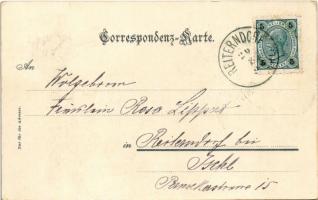 Correspondenz-Karte.
REITERNDORF
An
Wolgeboren
Fräulein Rosa Lippert
in Reiterndorf bei
Ischl
15
Nur für die Adresse.